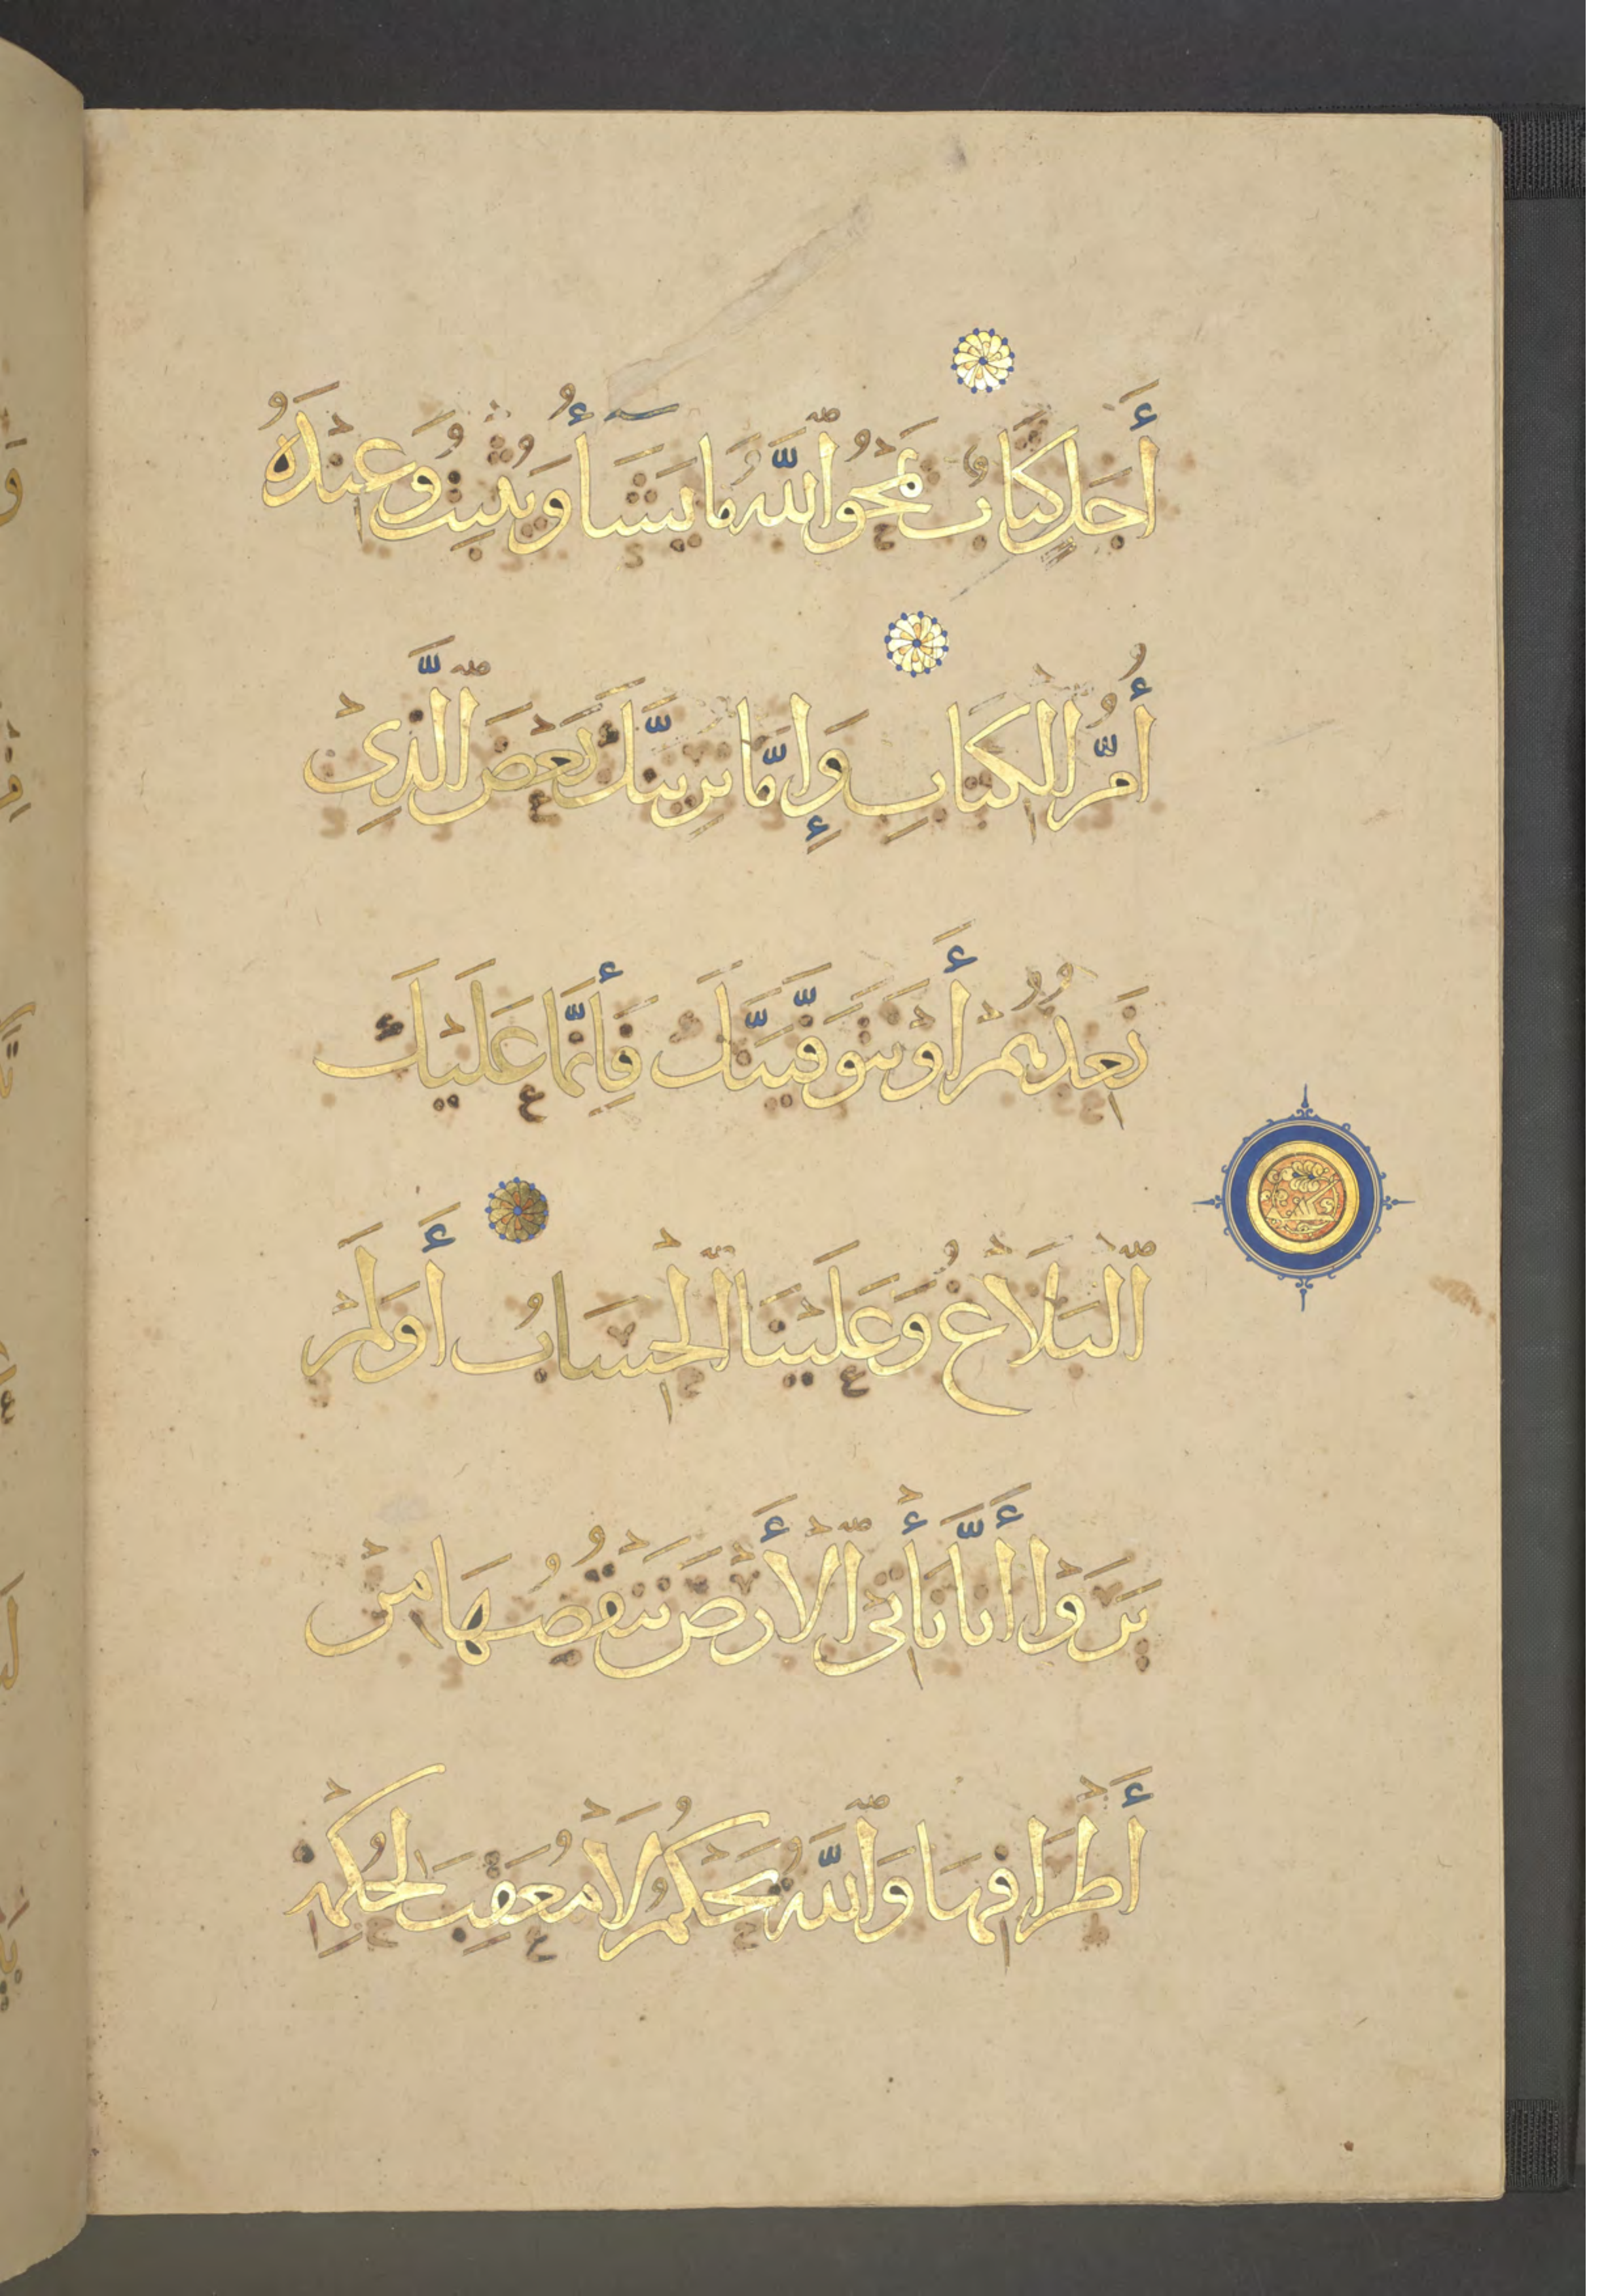 أَجَلٍ كِتَابٌ يَمْحُو اللَّهُ مَا يَشَآءُ وَيُثْبِتُ وَعِنْدَهُ
أُمُّ الْكِتَابِ وَإِمَّا نُرِيَنَّكَ بَعْضَ الَّذِي
نَعِدُهُمْ أَوْ نَتَوَفَّيَنَّكَ فَإِنَّمَا عَلَيْكَ
الْبَلَاغُ وَعَلَيْنَا الْحِسَابُ أَوَلَمْ
يَرَوْا أَنَّا نَأْتِي الْأَرْضَ نَنْقُصُهَا مِنْ
أَطْرَافِهَا وَاللَّهُ يَحْكُمُ لَا مُعَقِّبَ لِحُكْمِهِ